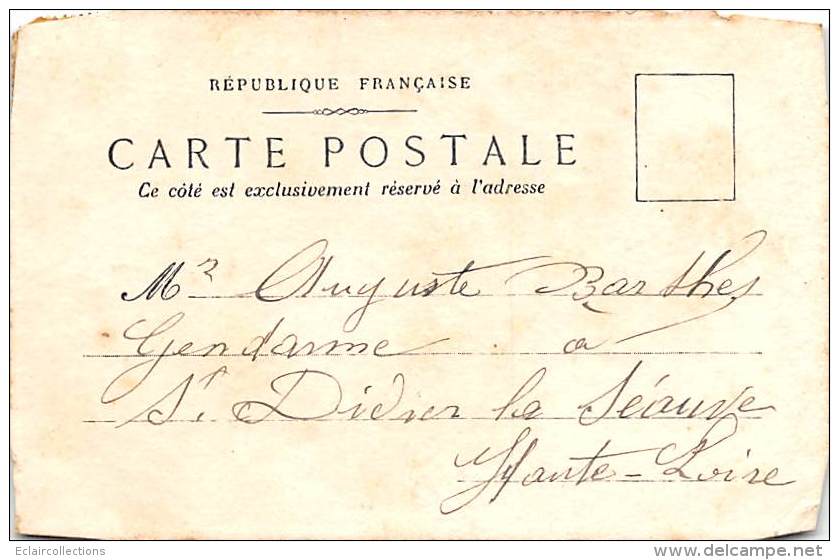 RÉPUBLIQUE FRANÇAISE
CARTE POSTALE
Ce côté est exclusivement réservé à l'adresse
Mr Auguste Barthes
Gendarme à
St Didier la Séauve
Haute-Loire
Eclaircollections
delcampe.net